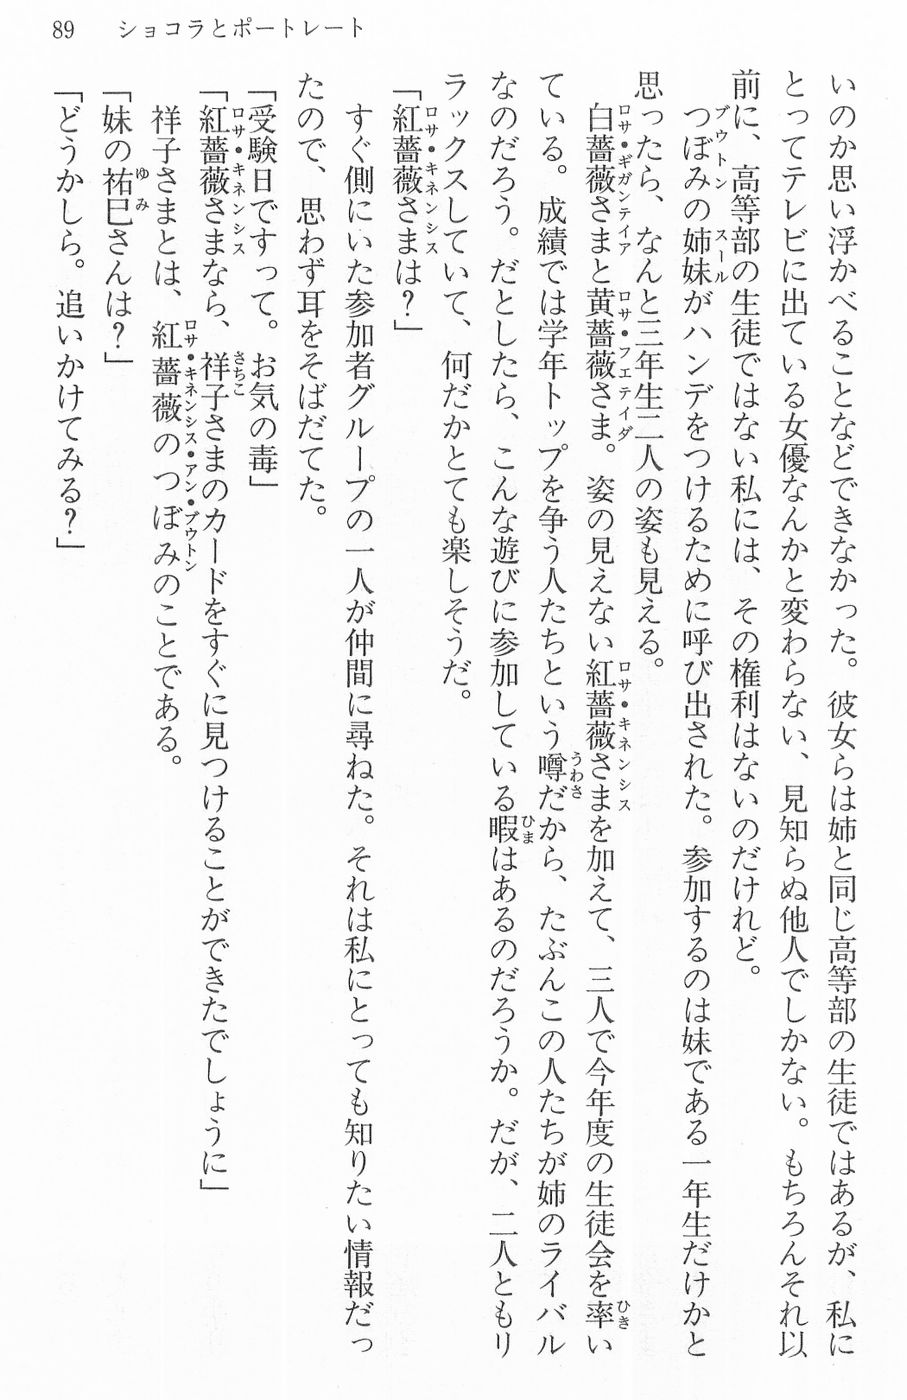 89　ショコラとポートレート
いのか思い浮かべることなどできなかった。彼女らは姉と同じ高等部の生徒ではあるが、私に
とってテレビに出ている女優なんかと変わらない、見知らぬ他人でしかない。もちろんそれ以
前に、高等部の生徒ではない私には、その権利はないのだけれど。
　つぼみの姉妹がハンデをつけるために呼び出された。参加するのは妹である一年生だけかと
思ったら、なんと三年生二人の姿も見える。
　白薔薇さまと黄薔薇さま。姿の見えない紅薔薇さまを加えて、三人で今年度の生徒会を率い
ている。成績では学年トップを争う人たちという噂だから、たぶんこの人たちが姉のライバル
なのだろう。だとしたら、こんな遊びに参加している暇はあるのだろうか。だが、二人ともリ
ラックスしていて、何だかとても楽しそうだ。
「紅薔薇さまは？」
　すぐ側にいた参加者グループの一人が仲間に尋ねた。それは私にとっても知りたい情報だっ
たので、思わず耳をそばだてた。
「受験日ですって。お気の毒」
「紅薔薇さまなら、祥子さまのカードをすぐに見つけることができたでしょうに」
　祥子さまとは、紅薔薇のつぼみのことである。
「妹の祐巳さんは？」
「どうかしら。追いかけてみる？」